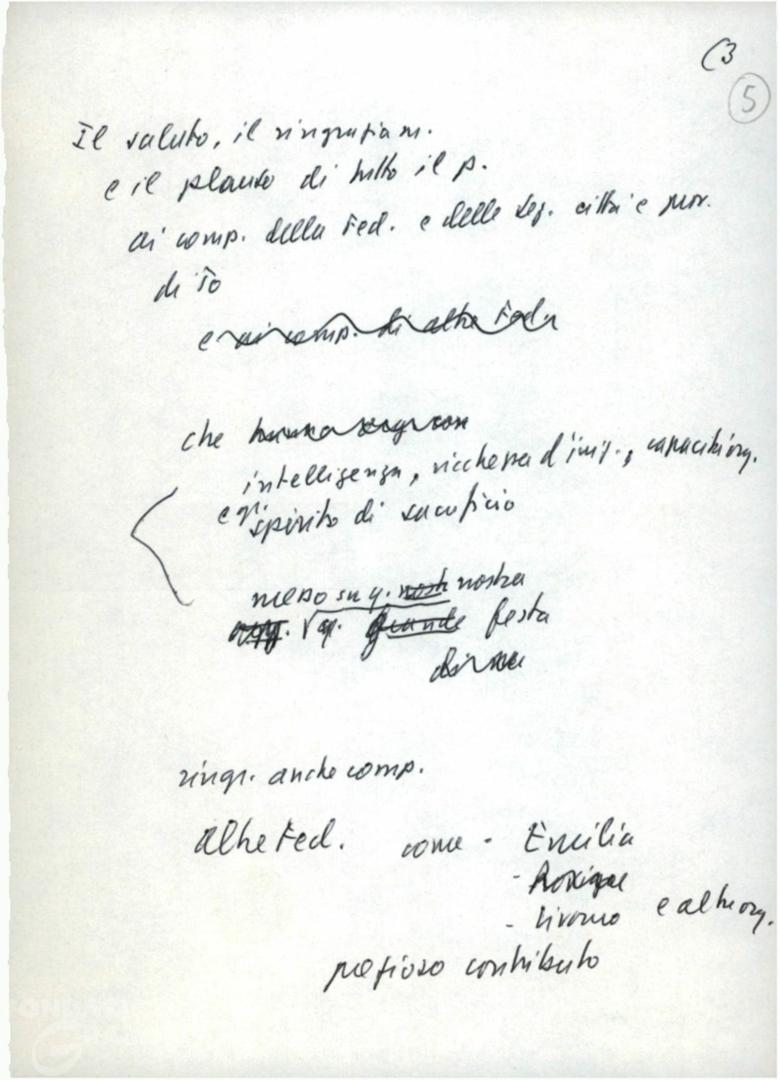 (3
5
Il saluto, il ringraziam.
e il plauso di tutto il p.
ai comp. della Fed. e delle sez. città e prov.
di To
e ai comp. di altre Fed.
che
intelligenza, ricchezza d'iniz., capacità org.
e spirito di sacrificio
messo su q. nostra
q. grande festa
ringr. anche comp.
altre Fed. come - Emilia
- Livorno e altre org.
prezioso contributo